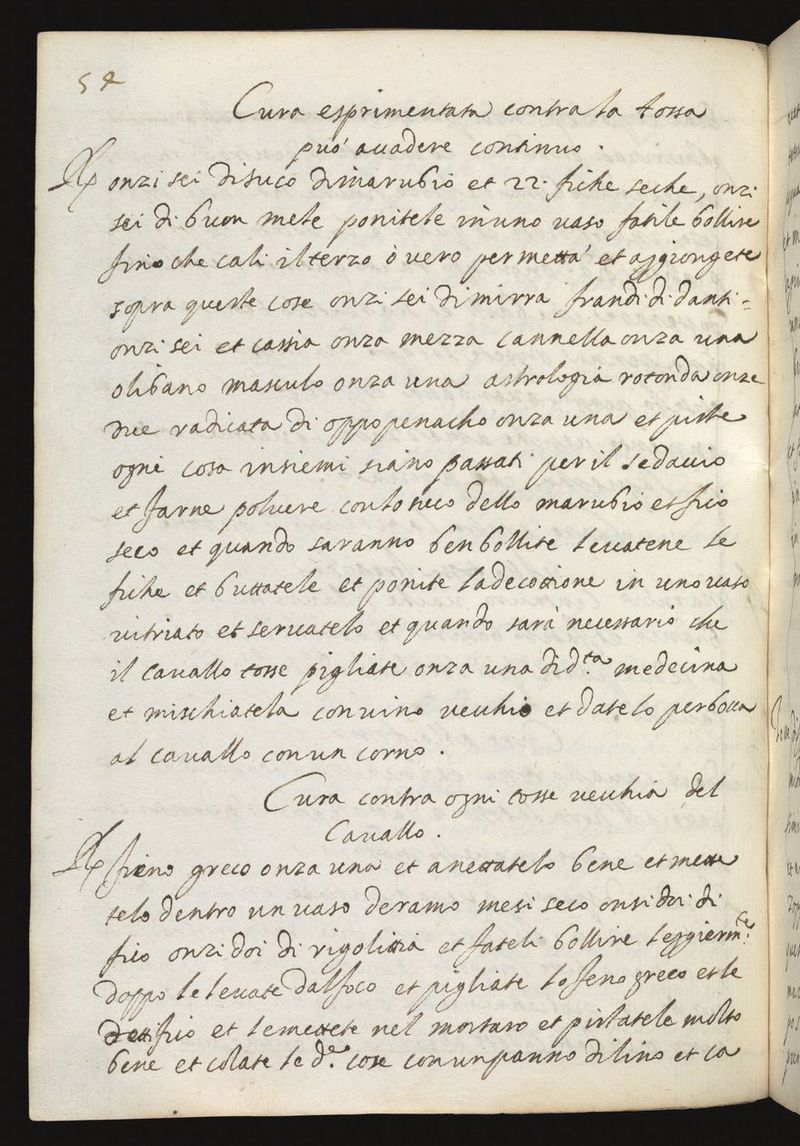 54
Cura esprimentata contra la tossa
può accadere continuo.
Rx onzi sei di suco di marubio et 22. fiche seche, onzi
sei di buon mele ponitele in uno vaso fatile bollire
fino che cali il terzo ò vero per mettà et aggiongete
sopra queste cose onzi sei di mirra
onzi sei et cassia onza mezza cannella onza una
olibano masculo onza una astrologia rotonda onze
due radicata di oppopenacho onza una et piste
ogni cosa insiemi siano passati per il sedaccio
et farne polvere con lo suco dello marubio et fico
seco et quando saranno ben bollite levatene le
fiche et buttatele et ponite la decottione in uno vaso
vitriato et servatelo et quando sarà necessario che
il cavallo tosse pigliate onza una di d.ta medecina
et mischiatela con vino vechio et datelo per bocca
al cavallo con un corno.
Cura contra ogni tosse vechia del
Cavallo.
Rx fieno greco onza una et anettatelo bene et mette
telo dentro un vaso de ramo mesi seco onsi doi di
fico onzi doi di rigolitia et fateli bollire leggierm.te
doppo le levate dal foco et pigliate lo feno greco et le
fico et le mettete nel mortaro et pistatele molto
bene et colate le d.e cose con un panno di lino et ca